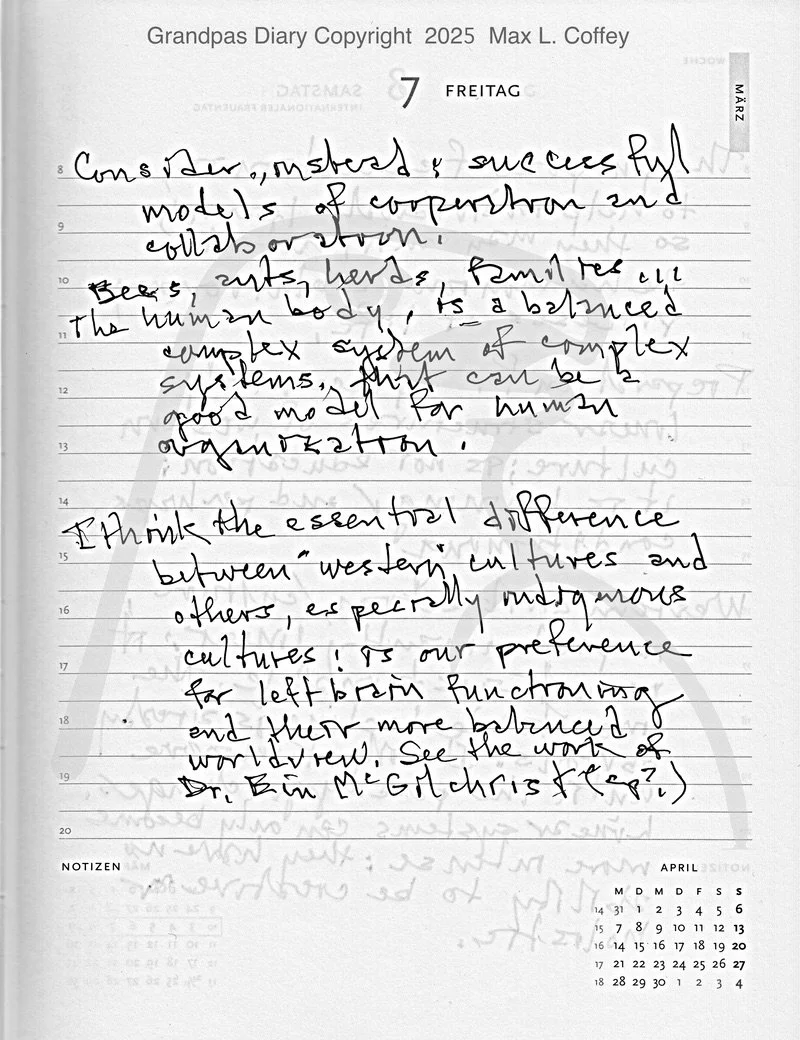 Grandpas Diary Copyright 2025 Max L. Coffey
7 FREITAG
MÄRZ
8 Consider, instead: successful
models of cooperation and
9
collaboration.
10 Bees, ants, herds, families ...
the human body, is a balanced
11
complex system of complex
12 systems, that can be a
good model for human
13 organization.
14
I think the essential difference
15 between "western" cultures and
16 others, especially indigenous
cultures: is our preference
17
for left brain functioning
18 and their more balanced
worldview. See the work of
19 Dr. Ein McGilchrist (sp?.)
20
NOTIZEN
APRIL
M D M D F S S
14 31 1 2 3 4 5 6
15 7 8 9 10 11 12 13
16 14 15 16 17 18 19 20
17 21 22 23 24 25 26 27
18 28 29 30 1 2 3 4